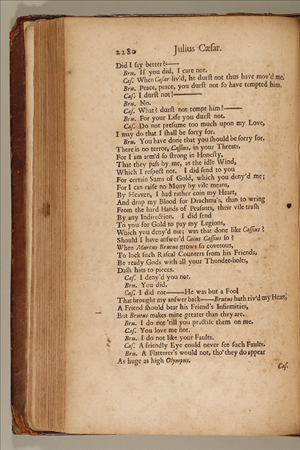 2280 Julius Cæsar.
Did I say better?——
Bru. If you did, I care not.
Cas. When Cæsar liv'd, he durst not thus have mov'd me.
Bru. Peace, peace, you durst not so have tempted him.
Cas. I durst not!————
Bru. No.
Cas. What? durst not tempt him!——
Bru. For your Life you durst not.
Cas. Do not presume too much upon my Love,
I may do that I shall be sorry for.
Bru. You have done that you should be sorry for.
There is no terror, Cassius, in your Threats.
For I am arm'd so strong in Honesty,
That they pass by me, as the idle Wind,
Which I respect not. I did send to you
For certain Sums of Gold, which you deny'd me;
For I can raise no Mony by vile means,
By Heaven, I had rather coin my Heart,
And drop my Blood for Drachma's, than to wring
From the hard Hands of Peasants, their vile trash
By any Indirection. I did send
To you for Gold to pay my Legions,
Which you deny'd me; was that done like Cassius?
Should I have answer'd Caius Cassius so?
When Marcus Brutus grows so covetous,
To lock such Rascal Counters from his Friends,
Be ready Gods with all your Thunder-bolts,
Dash him to pieces.
Cas. I deny'd you not.
Bru. You did.
Cas. I did not——He was but a Fool
That brought my answer back——Brutus hath riv'd my Heart,
A Friend should bear his Friend's Infirmities,
But Brutus makes mine greater than they are.
Bru. I do not 'till you practise them on me.
Cas. You love me not.
Bru. I do not like your Faults.
Cas. A friendly Eye could never see such Faults.
Bru. A Flatterer's would not, tho' they do appear
As huge as high Olympus.
Cas.